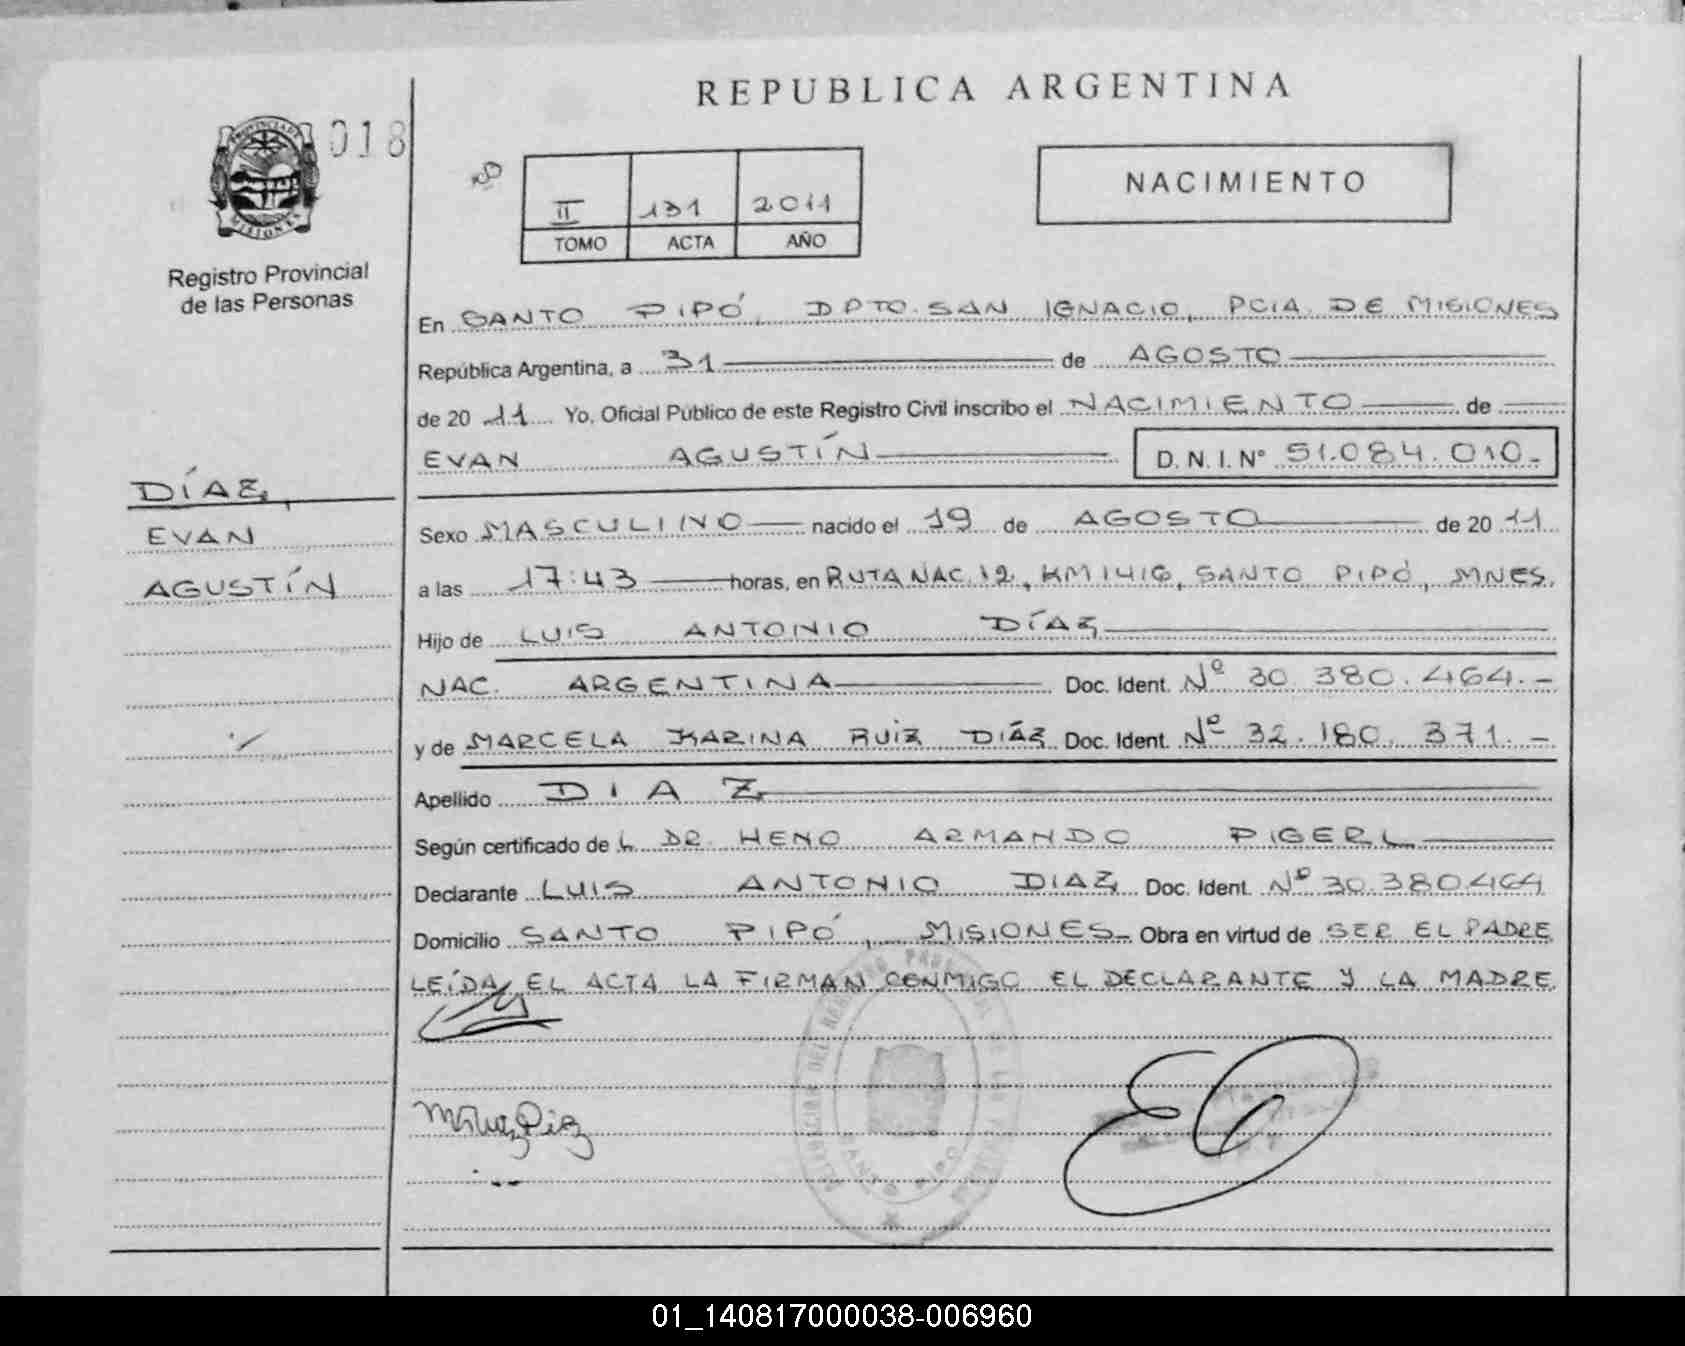 REPUBLICA ARGENTINA
018
NACIMIENTO
II 131 2011
TOMO ACTA AÑO
PROVINCIA DE
MISIONES
Registro Provincial
de las Personas
En SANTO PIPÓ, DPTO. SAN IGNACIO, PCIA. DE MISIONES
República Argentina, a 31 de AGOSTO
de 20 11 Yo, Oficial Público de este Registro Civil inscribo el NACIMIENTO de
EVAN AGUSTÍN D.N.I. N° 51.084.010.-
DÍAZ,
EVAN
AGUSTÍN
Sexo MASCULINO nacido el 19 de AGOSTO de 20 11
a las 17:43 horas, en RUTA NAC. 12, KM 1416, SANTO PIPÓ, MNES.
Hijo de LUIS ANTONIO DÍAZ
NAC. ARGENTINA Doc. Ident. Nº 30.380.464.-
y de MARCELA KARINA RUIZ DIÁZ Doc. Ident. Nº 32.180.371.-
Apellido DIAZ
Según certificado de L DR. HENO ARMANDO PIGERL
Declarante LUIS ANTONIO DIAZ Doc. Ident. Nº 30.380.464
Domicilio SANTO PIPÓ, MISIONES Obra en virtud de SER EL PADRE
LEÍDA EL ACTA LA FIRMAN CONMIGO EL DECLARANTE Y LA MADRE
SANTO PIPO
01_140817000038-006960